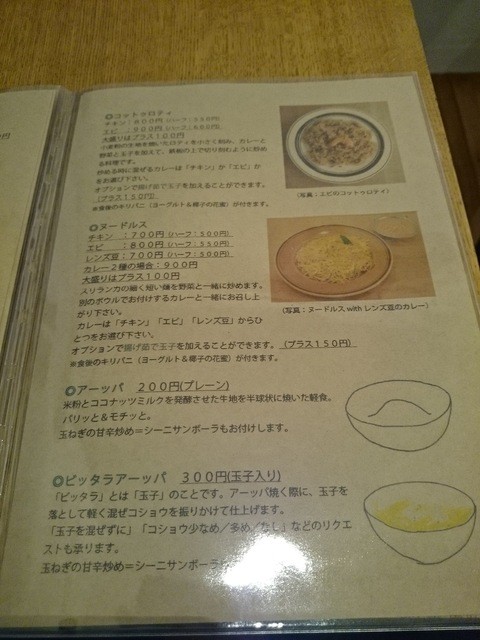 ◎コットゥロティ
チキン：８００円（ハーフ：５５０円）
エビ　：９００円（ハーフ：６００円）
大盛りはプラス１００円
小麦粉の生地を焼いたロティを小さく刻み、カレーと
野菜と玉子を加えて、鉄板の上で切り刻むように炒め
る料理です。
炒める時に混ぜるカレーは「チキン」か「エビ」か
をお選び下さい。
オプションで揚げ茹で玉子を加えることができます。
（プラス１５０円）
※食後のキリパニ（ヨーグルト＆椰子の花蜜）が付きます。
（写真：エビ刈コットゥロティ）
◎ヌードルス
チキン　：７００円（ハーフ：５００円）
エビ　　：８００円（ハーフ：５５０円）
レンズ豆：７００円（ハーフ：５００円）
カレー２種の場合：９００円
大盛りはプラス１００円
スリランカの細く短い麺を野菜と一緒に炒めます。
別のボウルでお付けするカレーと一緒にお召し上
がり下さい。
カレーは「チキン」「エビ」「レンズ豆」からひ
とつをお選び下さい。
オプションで揚げ茹で玉子を加えることができます。（プラス１５０円）
※食後のキリパニ（ヨーグルト＆椰子の花蜜）が付きます。
（写真：ヌードルス with レンズ豆のカレー）
◎アーッパ　２００円(プレーン)
米粉とココナッツミルクを発酵させた生地を半球状に焼いた軽食。
パリッと＆モチッと。
玉ねぎの甘辛炒め＝シーニサンボーラもお付けします。
◎ビッタラアーッパ　３００円(玉子入り)
「ビッタラ」とは「玉子」のことです。アーッパ焼く際に、玉子を
落として軽く混ぜコショウを振りかけて仕上げます。
「玉子を混ぜずに」「コショウ少なめ／多め／なし」などのリクエ
ストも承ります。
玉ねぎの甘辛炒め＝シーニサンボーラ